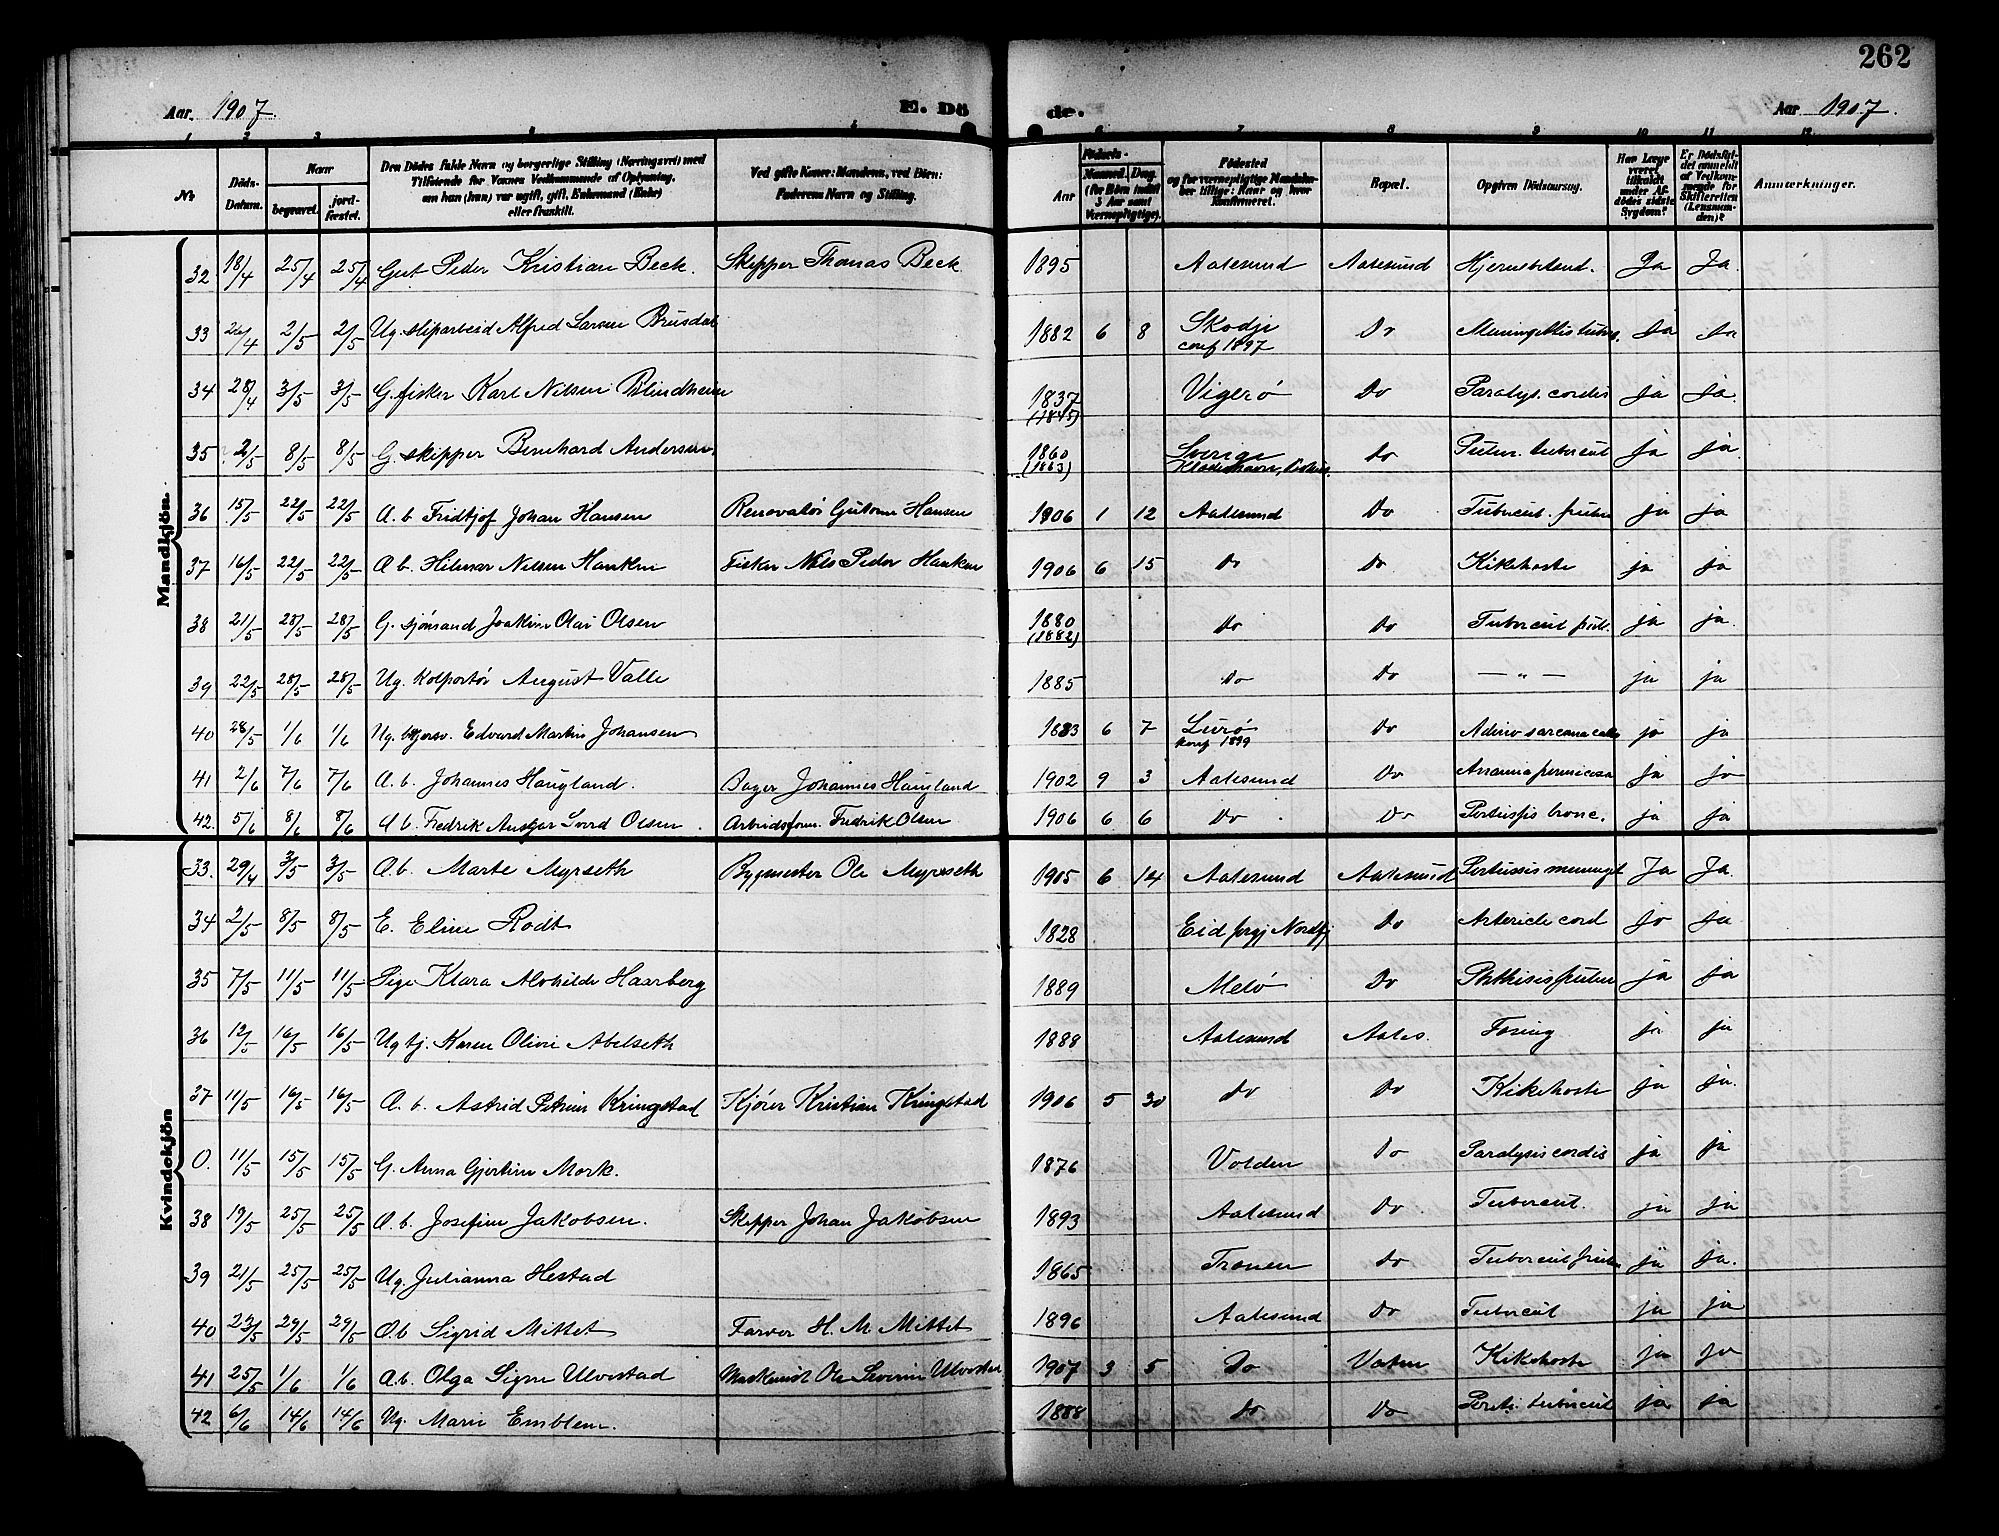 262
Aar 1907. E. Dö de. Aar 1907.
1 2 3 4 5 6 7 8 9 10 11 12
No. Döds-Datum. Naar begravet. jord-fæstet. Den Dödes fulde Navn og borgerlige Stilling (Næringsvei) med Tilföiende for Voxnes Vedkommende af Oplysning, om han (hun) var ugift, gift, Enkemand (Enke) eller fraskilt. Ved gifte Koner: Mandens, ved Börn: Faderens Navn og Stilling. Födsels- Aar Maaned. Dag. (for Börn indtil 3 Aar samt Værnepligtige). Födested og for værnepligtige Mandskaber tillige: Naar og hvor konfirmeret. Bopæl. Opgiven Dödsaarsag. Har Læge været tilkaldt under Afdödes sidste Sygdom? Er Dödsfaldet anmeldt af Vedkommende for Skifteretten (Lensmanden)? Anmærkninger.
Mandkjön.
32 18/4 25/4 25/4 Gut Peder Kristian Beck. Skipper Thomas Beck. 1895 Aalesund Aalesund Ja Ja.
33 26/4 2/5 2/5 Ug. sliparbeid Alfred Larsen Brusdal 1882 6 8 Skodje conf 1897 Do Meningitis tuberc. Ja Ja
34 28/4 3/5 3/5 G. fisker Karl Nilsen Blindheim 1837 (1845) Vigerö Do Paralys. cordis ja ja.
35 2/5 8/5 8/5 G. skipper Bernhard Andersen 1860 (1863) Sverige Do Pulm. tubercul ja ja
36 15/5 22/5 22/5 A. b Fridtjof Johan Hansen Renovatör Guttorm Hansen 1906 1 12 Aalesund Do Tubercul. pulm ja ja
37 16/5 22/5 22/5 A. b. Hilmar Nilsen Hanken Fisker Nils Peder Hanken 1906 6 15 Do Do Kikehoste ja ja
38 21/5 28/5 28/5 G. sjömand Joakim Olai Olsen 1880 (1882) Do Do Tubercul pul. ja ja.
39 22/5 28/5 28/5 Ug. Kolportör August Valle 1885 Do Do — " — ja ja
40 28/5 1/6 1/6 Ug. Edvard Martin Johansen 1883 6 7 Lurö konf 1899 Do ja ja
41 2/6 7/6 7/6 A. b. Johannes Haugland. Bager Johannes Haugland 1902 9 3 Aalesund Do Anæmia perniciosa ja ja
42. 5/6 8/6 8/6 A b. Fredrik Olsen. Arbeidsform. Fredrik Olsen 1906 6 6 Do Do Pertussis bronc. ja ja
Kvindekjön
33. 29/4 3/5 3/5 A. b. Marte Myrseth Bygmester Ole Myrseth 1905 6 14 Aalesund Aalesund Pertussis meningit Ja Ja.
34 2/5 8/5 8/5 E. Eline Rodt 1828 Eid prgj Nordfj Do cord ja ja.
35 7/5 11/5 11/5 Pige Klara Alvhilde Haarberg 1889 Melö Do Phthisis pulm ja ja
36 12/5 16/5 16/5 Ug tj. Karen Oline Abelseth 1888 Aalesund Aales. ja ja
37 11/5 16/5 16/5 A. b. Astrid Petrine Kringstad Kjörer Kristian Kringstad 1906 5 30 Do Do Kikehoste ja ja.
0. 11/5 15/5 15/5 G. Anna Gjertine Mork. 1876 Volden Do Paralysis cordis ja ja
38 19/5 25/5 25/5 A. b. Josefine Jakobsen. Skipper Johan Jakobsen 1893 Aalesund Do Tubercul. ja ja
39 21/5 25/5 25/5 Ug. Julianna Hestad 1865 Do Tubercul pulm ja ja.
40 23/5 29/5 29/5 A. b Sigrid Mittet Farver H. M Mittet 1896 Aalesund Do Tubercul ja ja
41 25/5 1/6 1/6 A. b. Olga Signe Ulvestad Maskinist Ole Severin Ulvestad 1907 3 5 Do Kikehoste ja ja
42 6/6 14/6 14/6 Ug. Marie Emblem. 1888 Do Do Perit. tubercul ja ja